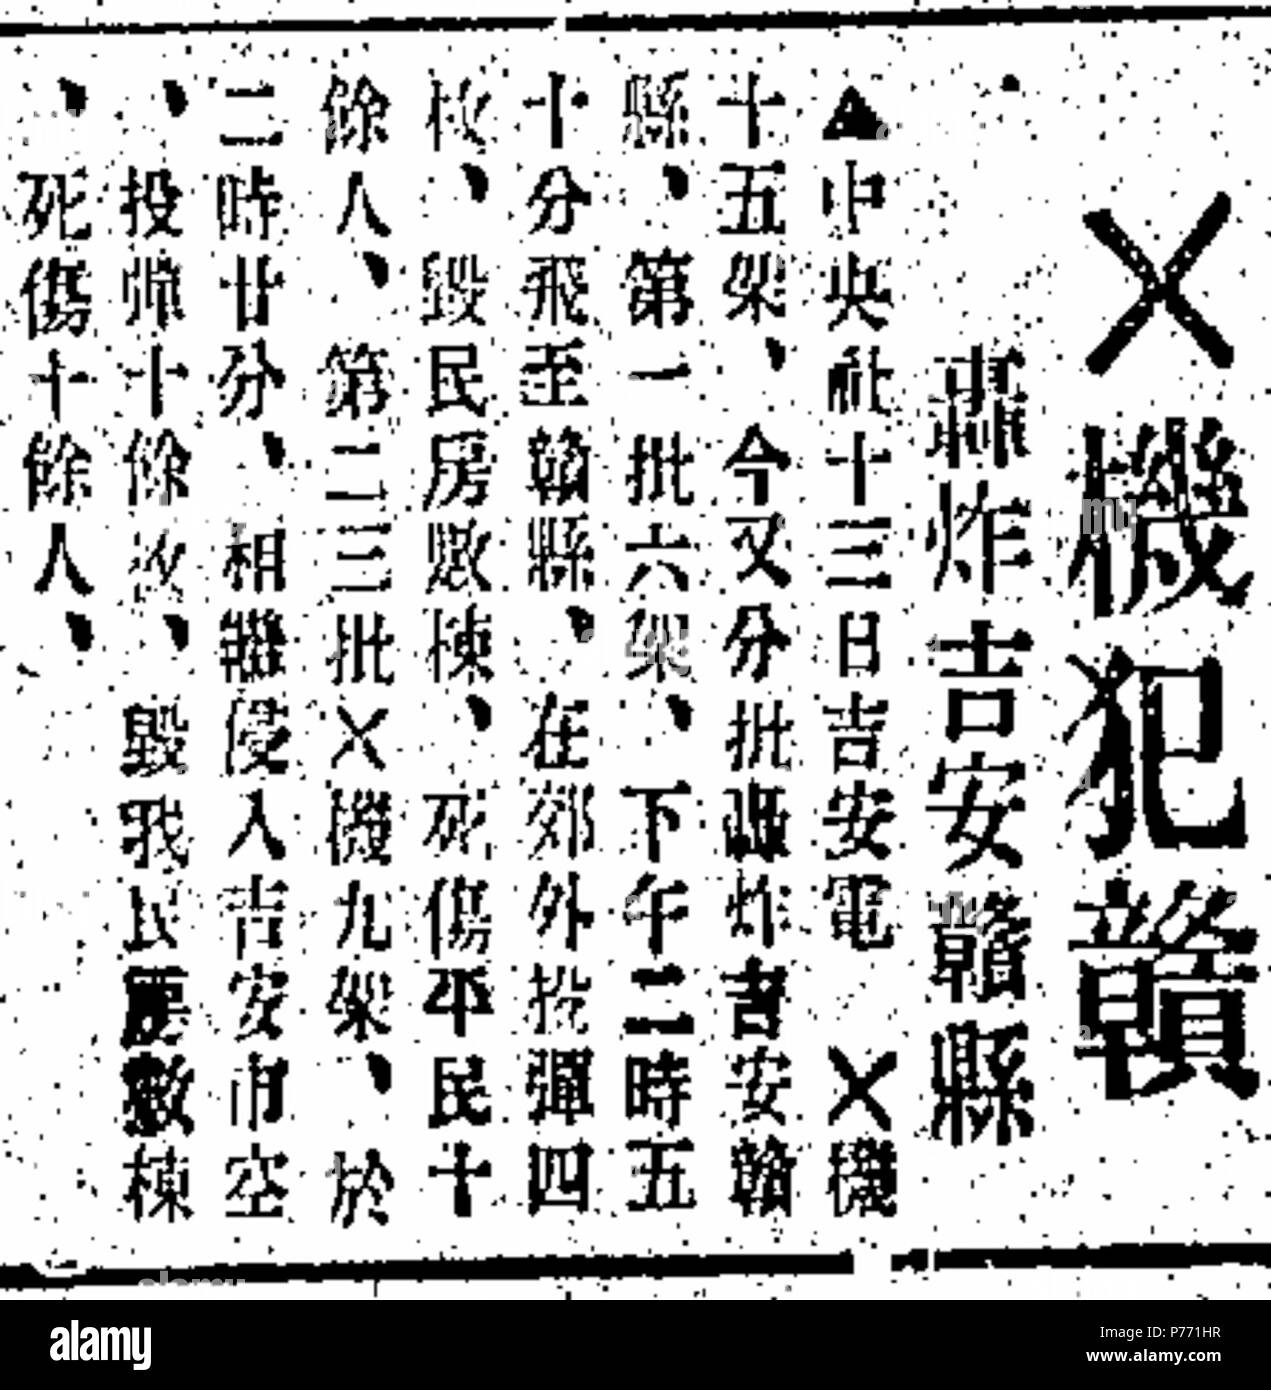 ×機犯贛
轟炸吉安贛縣
▲中央社十三日吉安電 ×機
十五架、今又分批轟炸吉安贛
縣、第一批六架、下午二時五
十分飛至贛縣、在郊外投彈四
枚、毀民房數棟、死傷平民十
餘人、第二三批×機九架、於
二時廿分、相繼侵入吉安市空
、投彈十餘枚、毀我民房數棟
、死傷十餘人、
alamy
alamy
Image ID: P771HR
www.alamy.com